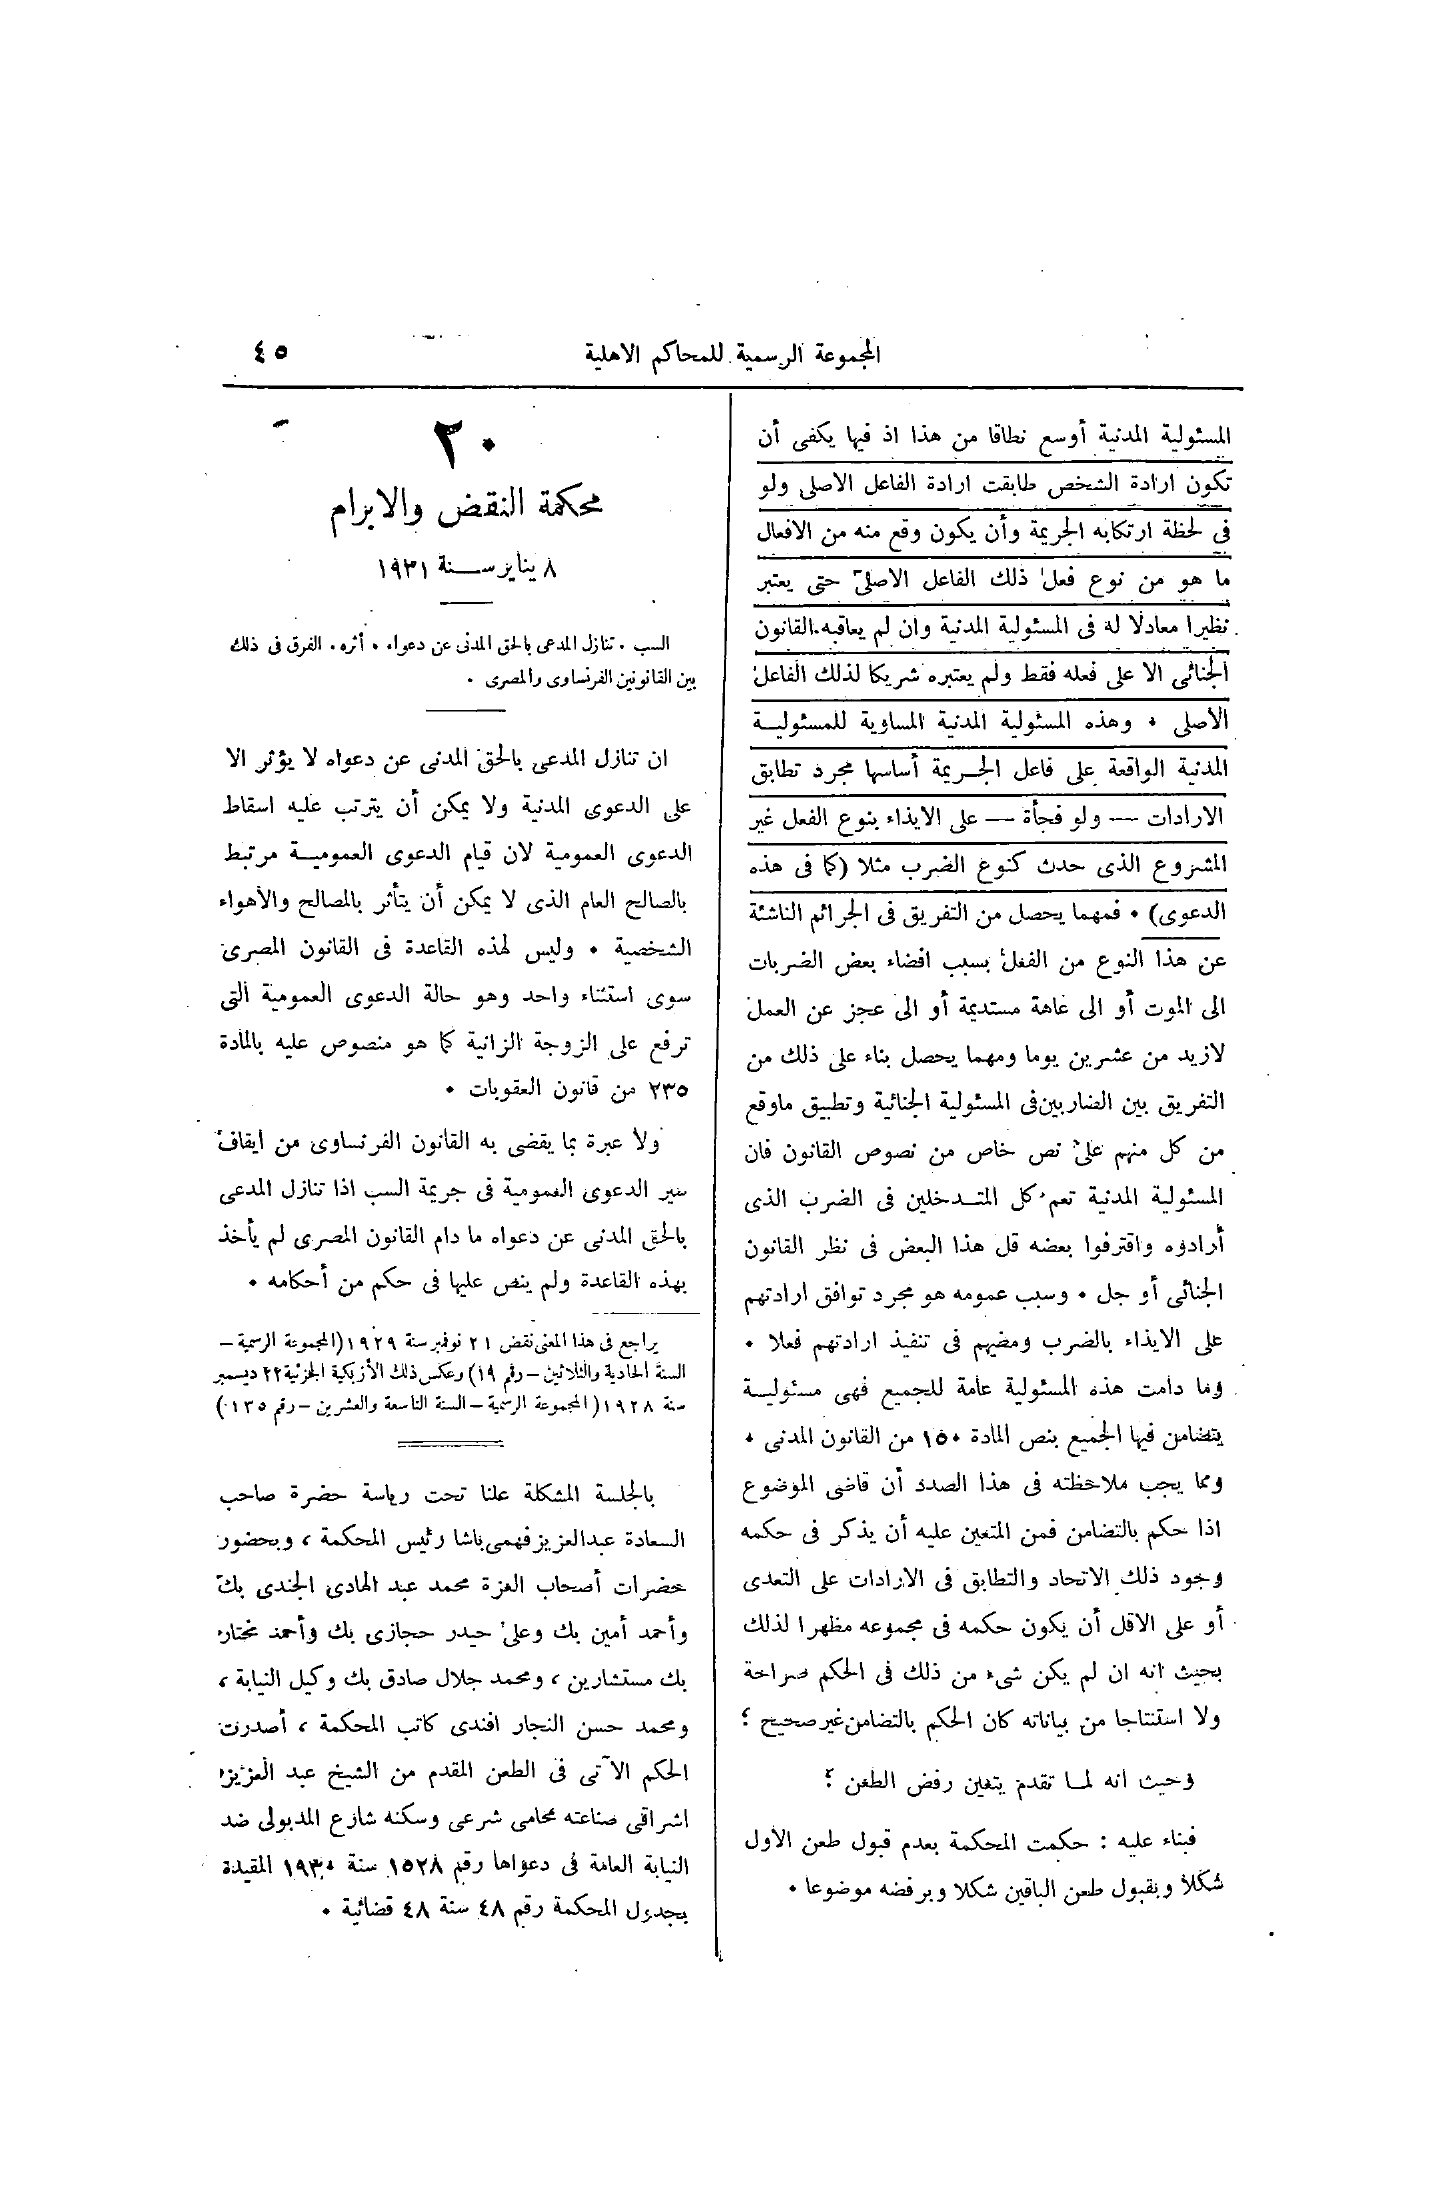 المجموعة الرسمية للمحاكم الاهلية
٤٥
المسئولية المدنية أوسع نطاقا من هذا اذ فيها يكفى أن
تكون ارادة الشخص طابقت ارادة الفاعل الاصلى ولو
فى لحظة ارتكابه الجريمة وأن يكون وقع منه من الافعال
ما هو من نوع فعل ذلك الفاعل الاصلى حتى يعتبر
نظيرا معادلا له فى المسئولية المدنية وان لم يعاقبه القانون
الجنائى الا على فعله فقط ولم يعتبره شريكا لذلك الفاعل
الأصلى . وهذه المسئولية المدنية المساوية للمسئوليـة
المدنية الواقعة على فاعل الجـريمة أساسها مجرد تطابق
الارادات — ولو فجأة — على الايذاء بنوع الفعل غير
المشروع الذى حدث كنوع الضرب مثلا (كما فى هذه
الدعوى) . فمهما يحصل من التفريق فى الجرائم الناشئة
عن هذا النوع من الفعل بسبب افضاء بعض الضربات
الى الموت أو الى عاهة مستديمة أو الى عجز عن العمل
لازيد من عشرين يوما ومهما يحصل بناء على ذلك من
التفريق بين الضاربين فى المسئولية الجنائية وتطبيق ماوقع
من كل منهم على نص خاص من نصوص القانون فان
المسئولية المدنية تعم كل المتـدخلين فى الضرب الذى
أرادوه واقترفوا بعضه قل هذا البعض فى نظر القانون
الجنائى أو جل . وسبب عمومه هو مجرد توافق ارادتهم
على الايذاء بالضرب ومضيهم فى تنفيذ ارادتهم فعلا .
وما دامت هذه المسئولية عامة للجميع فهى مسئوليـة
يتضامن فيها الجميع بنص المادة ١٥٠ من القانون المدنى .
ومما يجب ملاحظته فى هذا الصدد أن قاضى الموضوع
اذا حكم بالتضامن فمن المتعين عليه أن يذكر فى حكمه
وجود ذلك الاتحاد والتطابق فى الارادات على التعدى
أو على الاقل أن يكون حكمه فى مجموعه مظهرا لذلك
بحيث انه ان لم يكن شىء من ذلك فى الحكم صراحة
ولا استنتاجا من بياناته كان الحكم بالتضامن غير صحيح ؛
وحيث انه لمـا تقدم يتعين رفض الطعن ؛
فبناء عليه : حكمت المحكمة بعدم قبول طعن الأول
شكلا وبقبول طعن الباقين شكلا وبرفضه موضوعا .
٢٠
محكمة النقض والابرام
٨ يناير سـنة ١٩٣١
السب . تنازل المدعى بالحق المدنى عن دعواه . أثره . الفرق فى ذلك
بين القانونين الفرنساوى والمصرى .
ان تنازل المدعى بالحق المدنى عن دعواه لا يؤثر الا
على الدعوى المدنية ولا يمكن أن يترتب عليه اسقاط
الدعوى العمومية لان قيام الدعوى العموميـة مرتبط
بالصالح العام الذى لا يمكن أن يتأثر بالمصالح والأهواء
الشخصية . وليس لهذه القاعدة فى القانون المصرى
سوى استثناء واحد وهو حالة الدعوى العمومية التى
ترفع على الزوجة الزانية كما هو منصوص عليه بالمادة
٢٣٥ من قانون العقوبات .
ولا عبرة بما يقضى به القانون الفرنساوى من ايقاف
سير الدعوى العمومية فى جريمة السب اذا تنازل المدعى
بالحق المدنى عن دعواه ما دام القانون المصرى لم يأخذ
بهذه القاعدة ولم ينص عليها فى حكم من أحكامه .
يراجع فى هذا المعنى نقض ٢١ نوفمبر سنة ١٩٢٩ (المجموعة الرسمية –
السنة الحادية والثلاثين – رقم ١٩) وعكس ذلك الأزبكية الجزئية ٢٢ ديسمبر
سنة ١٩٢٨ (المجموعة الرسمية – السنة التاسعة والعشرين – رقم ١٣٥)
بالجلسة المشكلة علنا تحت رياسة حضرة صاحب
السعادة عبدالعزيز فهمى باشا رئيس المحكمة ، وبحضور
حضرات أصحاب العزة محمد عبد الهادى الجندى بك
وأحمد أمين بك وعلى حيدر حجازى بك وأحمد مختار
بك مستشارين ، ومحمد جلال صادق بك وكيل النيابة ،
ومحمد حسن النجار افندى كاتب المحكمة ، أصدرت
الحكم الآتى فى الطعن المقدم من الشيخ عبد العزيز
اشراقى صناعته محامى شرعى وسكنه شارع المدبولى ضد
النيابة العامة فى دعواها رقم ١٥٢٨ سنة ١٩٣٠ المقيدة
بجدول المحكمة رقم ٤٨ سنة ٤٨ قضائية .